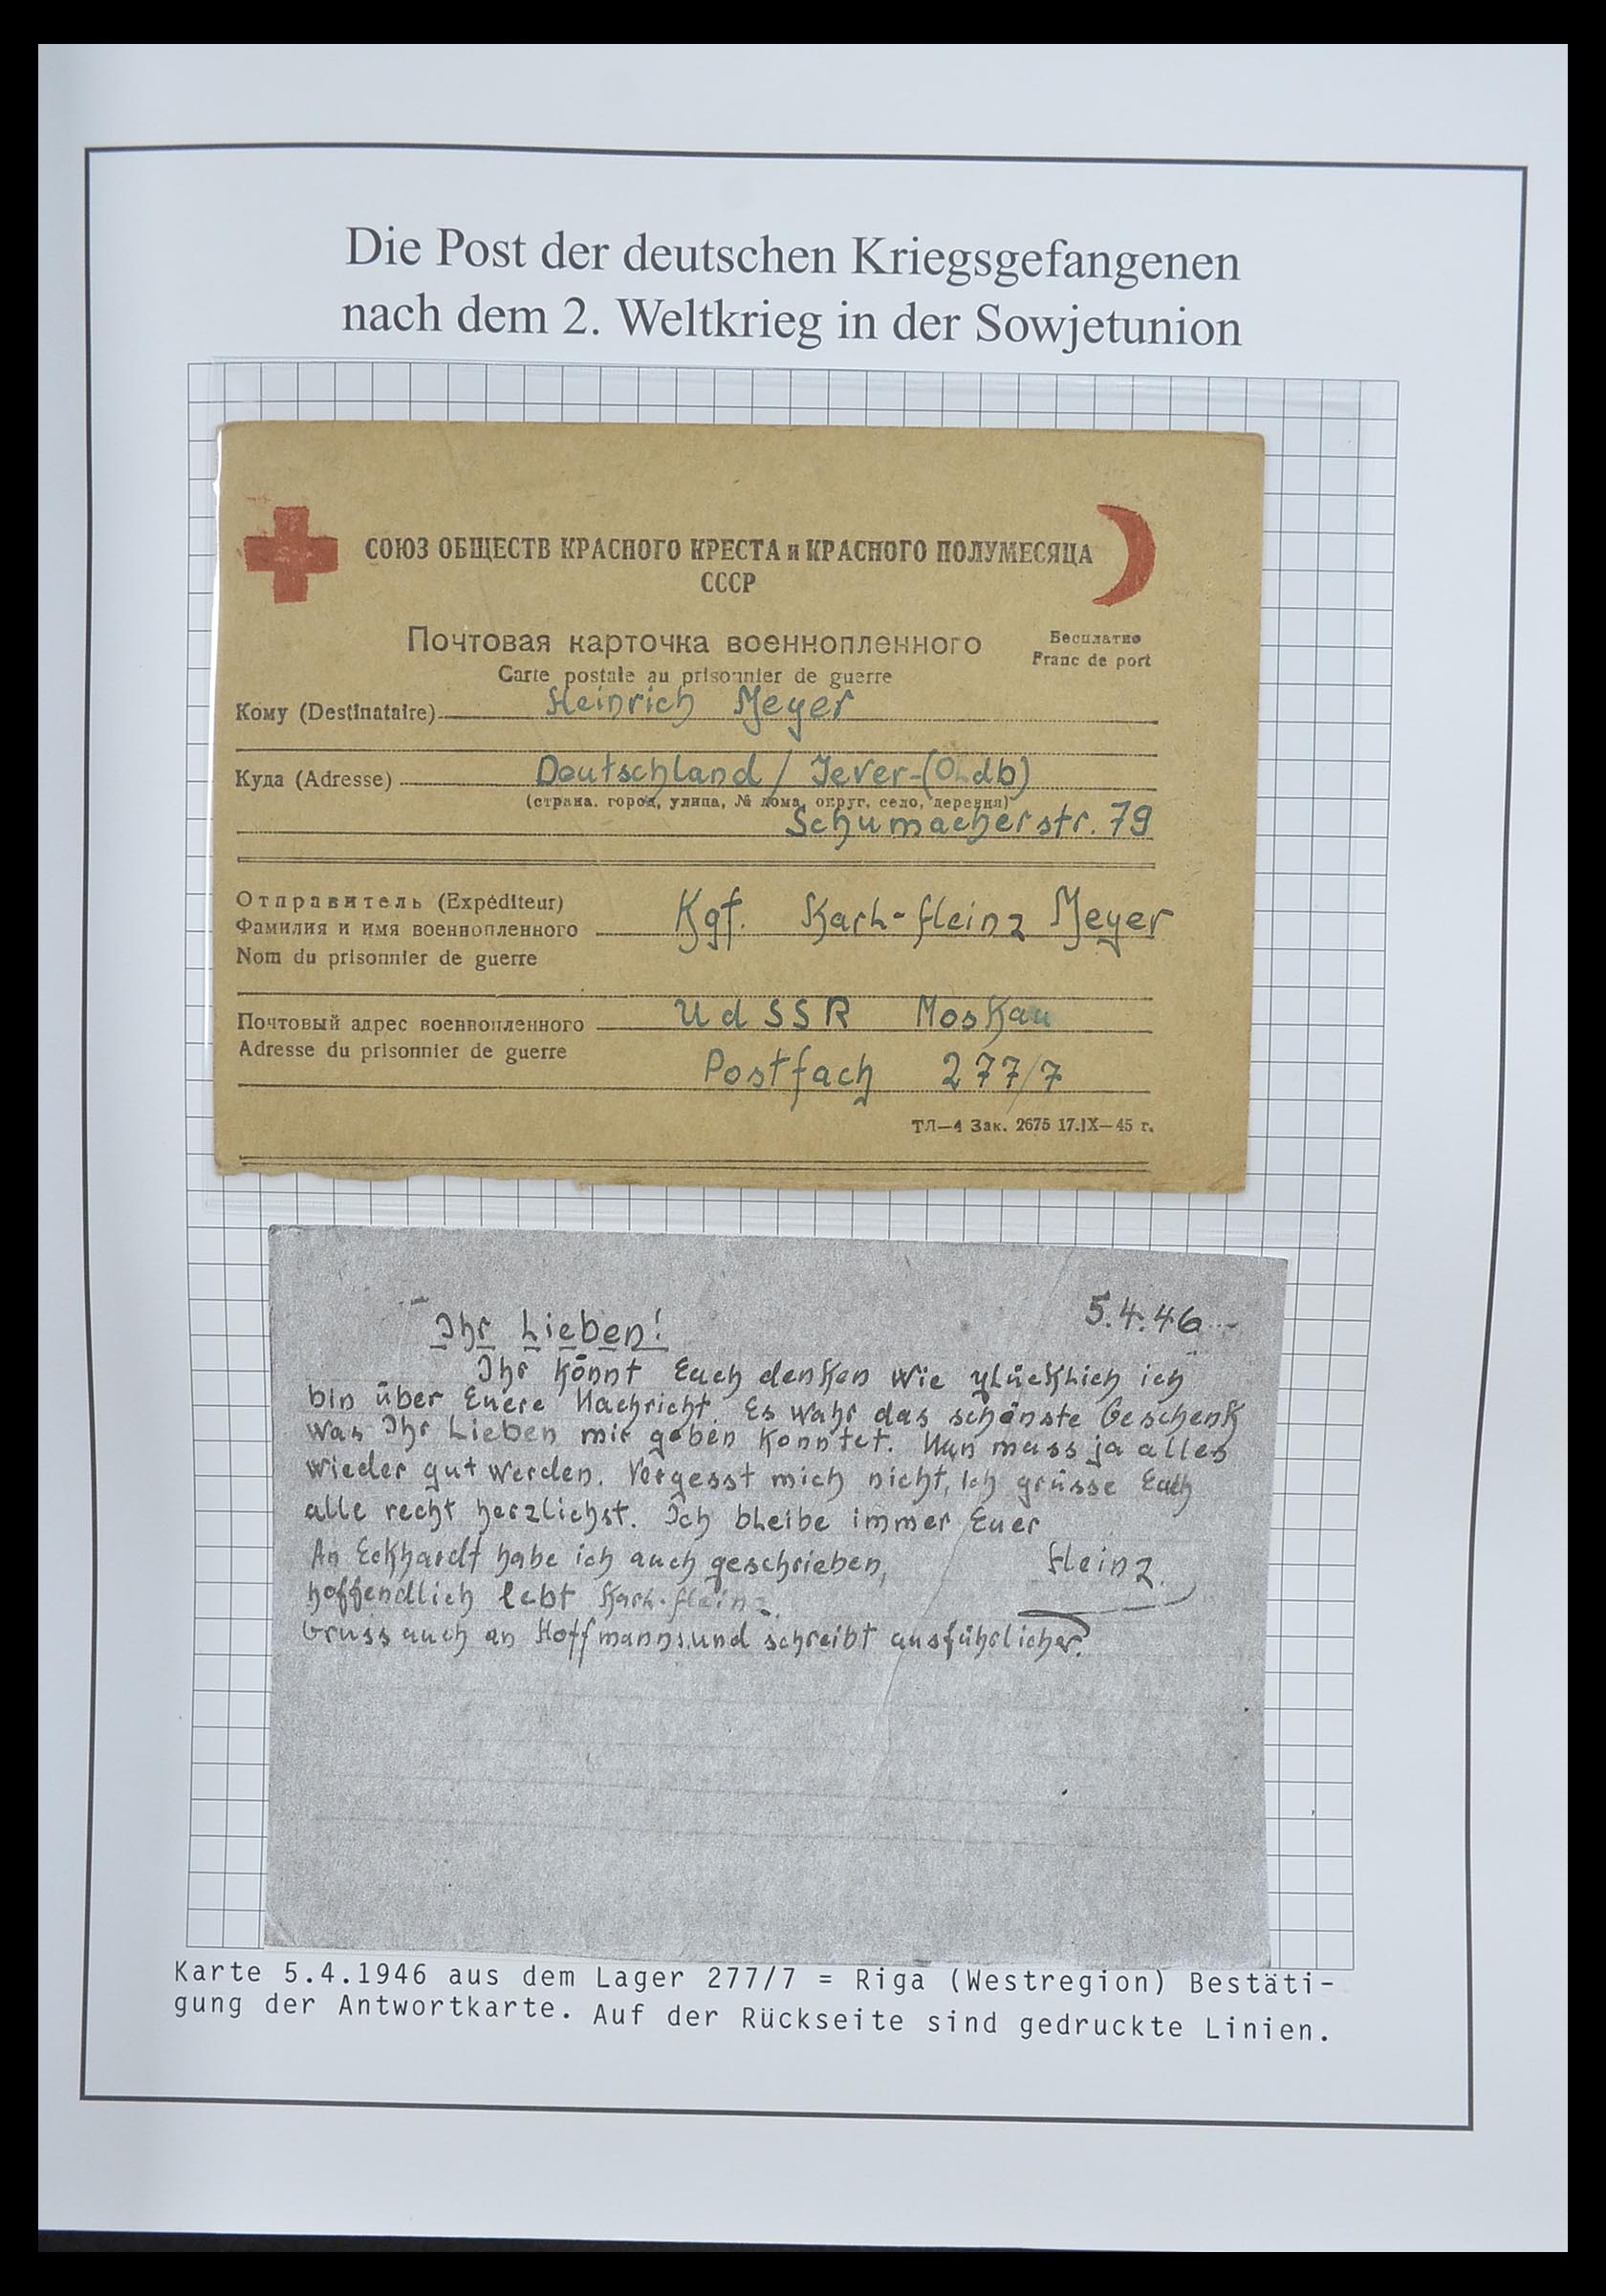 Die Post der deutschen Kriegsgefangenen
nach dem 2. Weltkrieg in der Sowjetunion
СОЮЗ ОБЩЕСТВ КРАСНОГО КРЕСТА и КРАСНОГО ПОЛУМЕСЯЦА
СССР
Почтовая карточка военнопленного
Бесплатно
Carte postale au prisonnier de guerre
Franc de port
Кому (Destinataire) Heinrich Meyer
Куда (Adresse) Deutschland / Jever-(Oldb)
(страна, город, улица, № дома, округ, село, деревня)
Schumacherstr. 79
Отправитель (Expéditeur)
Фамилия и имя военнопленного Kgf. Karl-Heinz Meyer
Nom du prisonnier de guerre
Почтовый адрес военнопленного UdSSR Moskau
Adresse du prisonnier de guerre
Postfach 277/7
ТЛ—4 Зак. 2675 17.IX—45 г.
5.4.46
Ihr Lieben!
Ihr könnt Euch denken wie glücklich ich
bin über Euere Nachricht. Es wahr das schönste Geschenk
was Ihr Lieben mir geben konntet. Nun muss ja alles
wieder gut werden. Vergesst mich nicht, Ich grüsse Euch
alle recht herzlichst. Ich bleibe immer Euer
An Eckhardt habe ich auch geschrieben, Heinz.
hoffendlich lebt Karl-Heinz.
Gruss auch an Hoffmanns und schreibt ausführlicher.
Karte 5.4.1946 aus dem Lager 277/7 = Riga (Westregion) Bestäti-
gung der Antwortkarte. Auf der Rückseite sind gedruckte Linien.